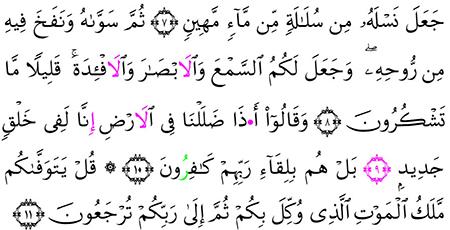 جَعَلَ نَسْلَهُۥ مِن سُلَٰلَةٖ مِّن مَّآءٖ مَّهِينٖ ۝٧ ثُمَّ سَوَّىٰهُ وَنَفَخَ فِيهِ
مِن رُّوحِهِۦۖ وَجَعَلَ لَكُمُ ٱلسَّمْعَ وَالَابْصَٰرَ وَالَافْـِٔدَةَۚ قَلِيلٗا مَّا
تَشْكُرُونَ ۝٨ وَقَالُوٓاْ أَ•ذَا ضَلَلْنَا فِى الَارْضِ إِنَّا لَفِى خَلْقٖ
جَدِيدِۢ ۝٩ بَلْ هُم بِلِقَآءِ رَبِّهِمْ كَٰفِرُونَ ۝١٠ ۞ قُلْ يَتَوَفَّىٰكُم
مَّلَكُ ٱلْمَوْتِ ٱلَّذِى وُكِّلَ بِكُمْ ثُمَّ إِلَىٰ رَبِّكُمْ تُرْجَعُونَ ۝١١